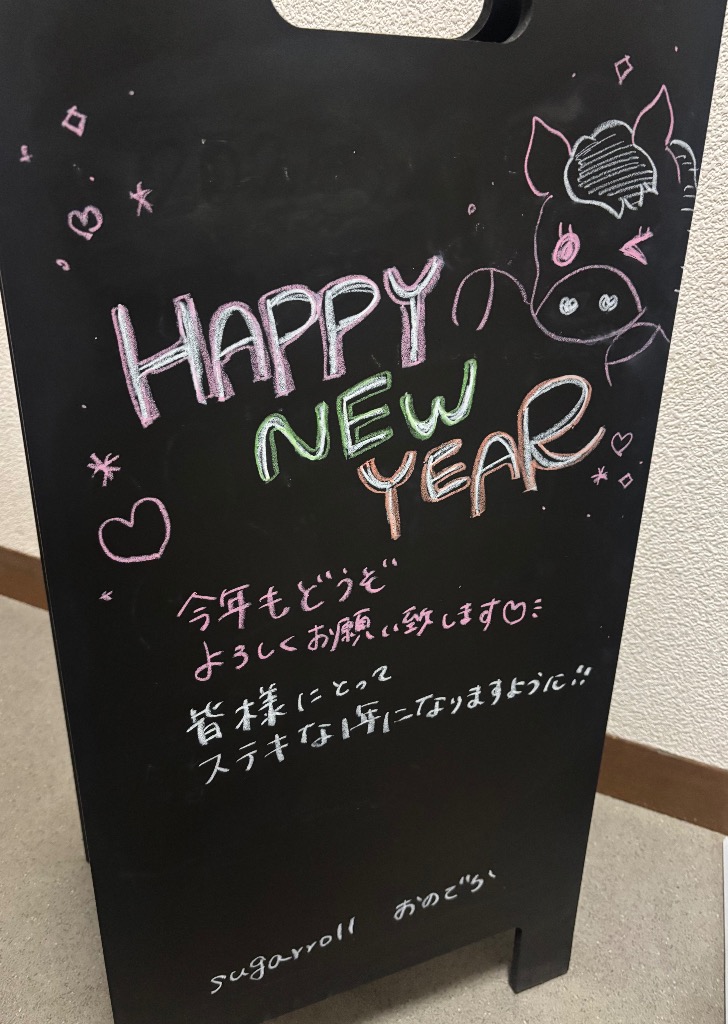 HAPPY
NEW
YEAR
今年もどうぞ
よろしくお願い致します♡
皆様にとって
ステキな1年になりますように!!
sugarroll おのでら